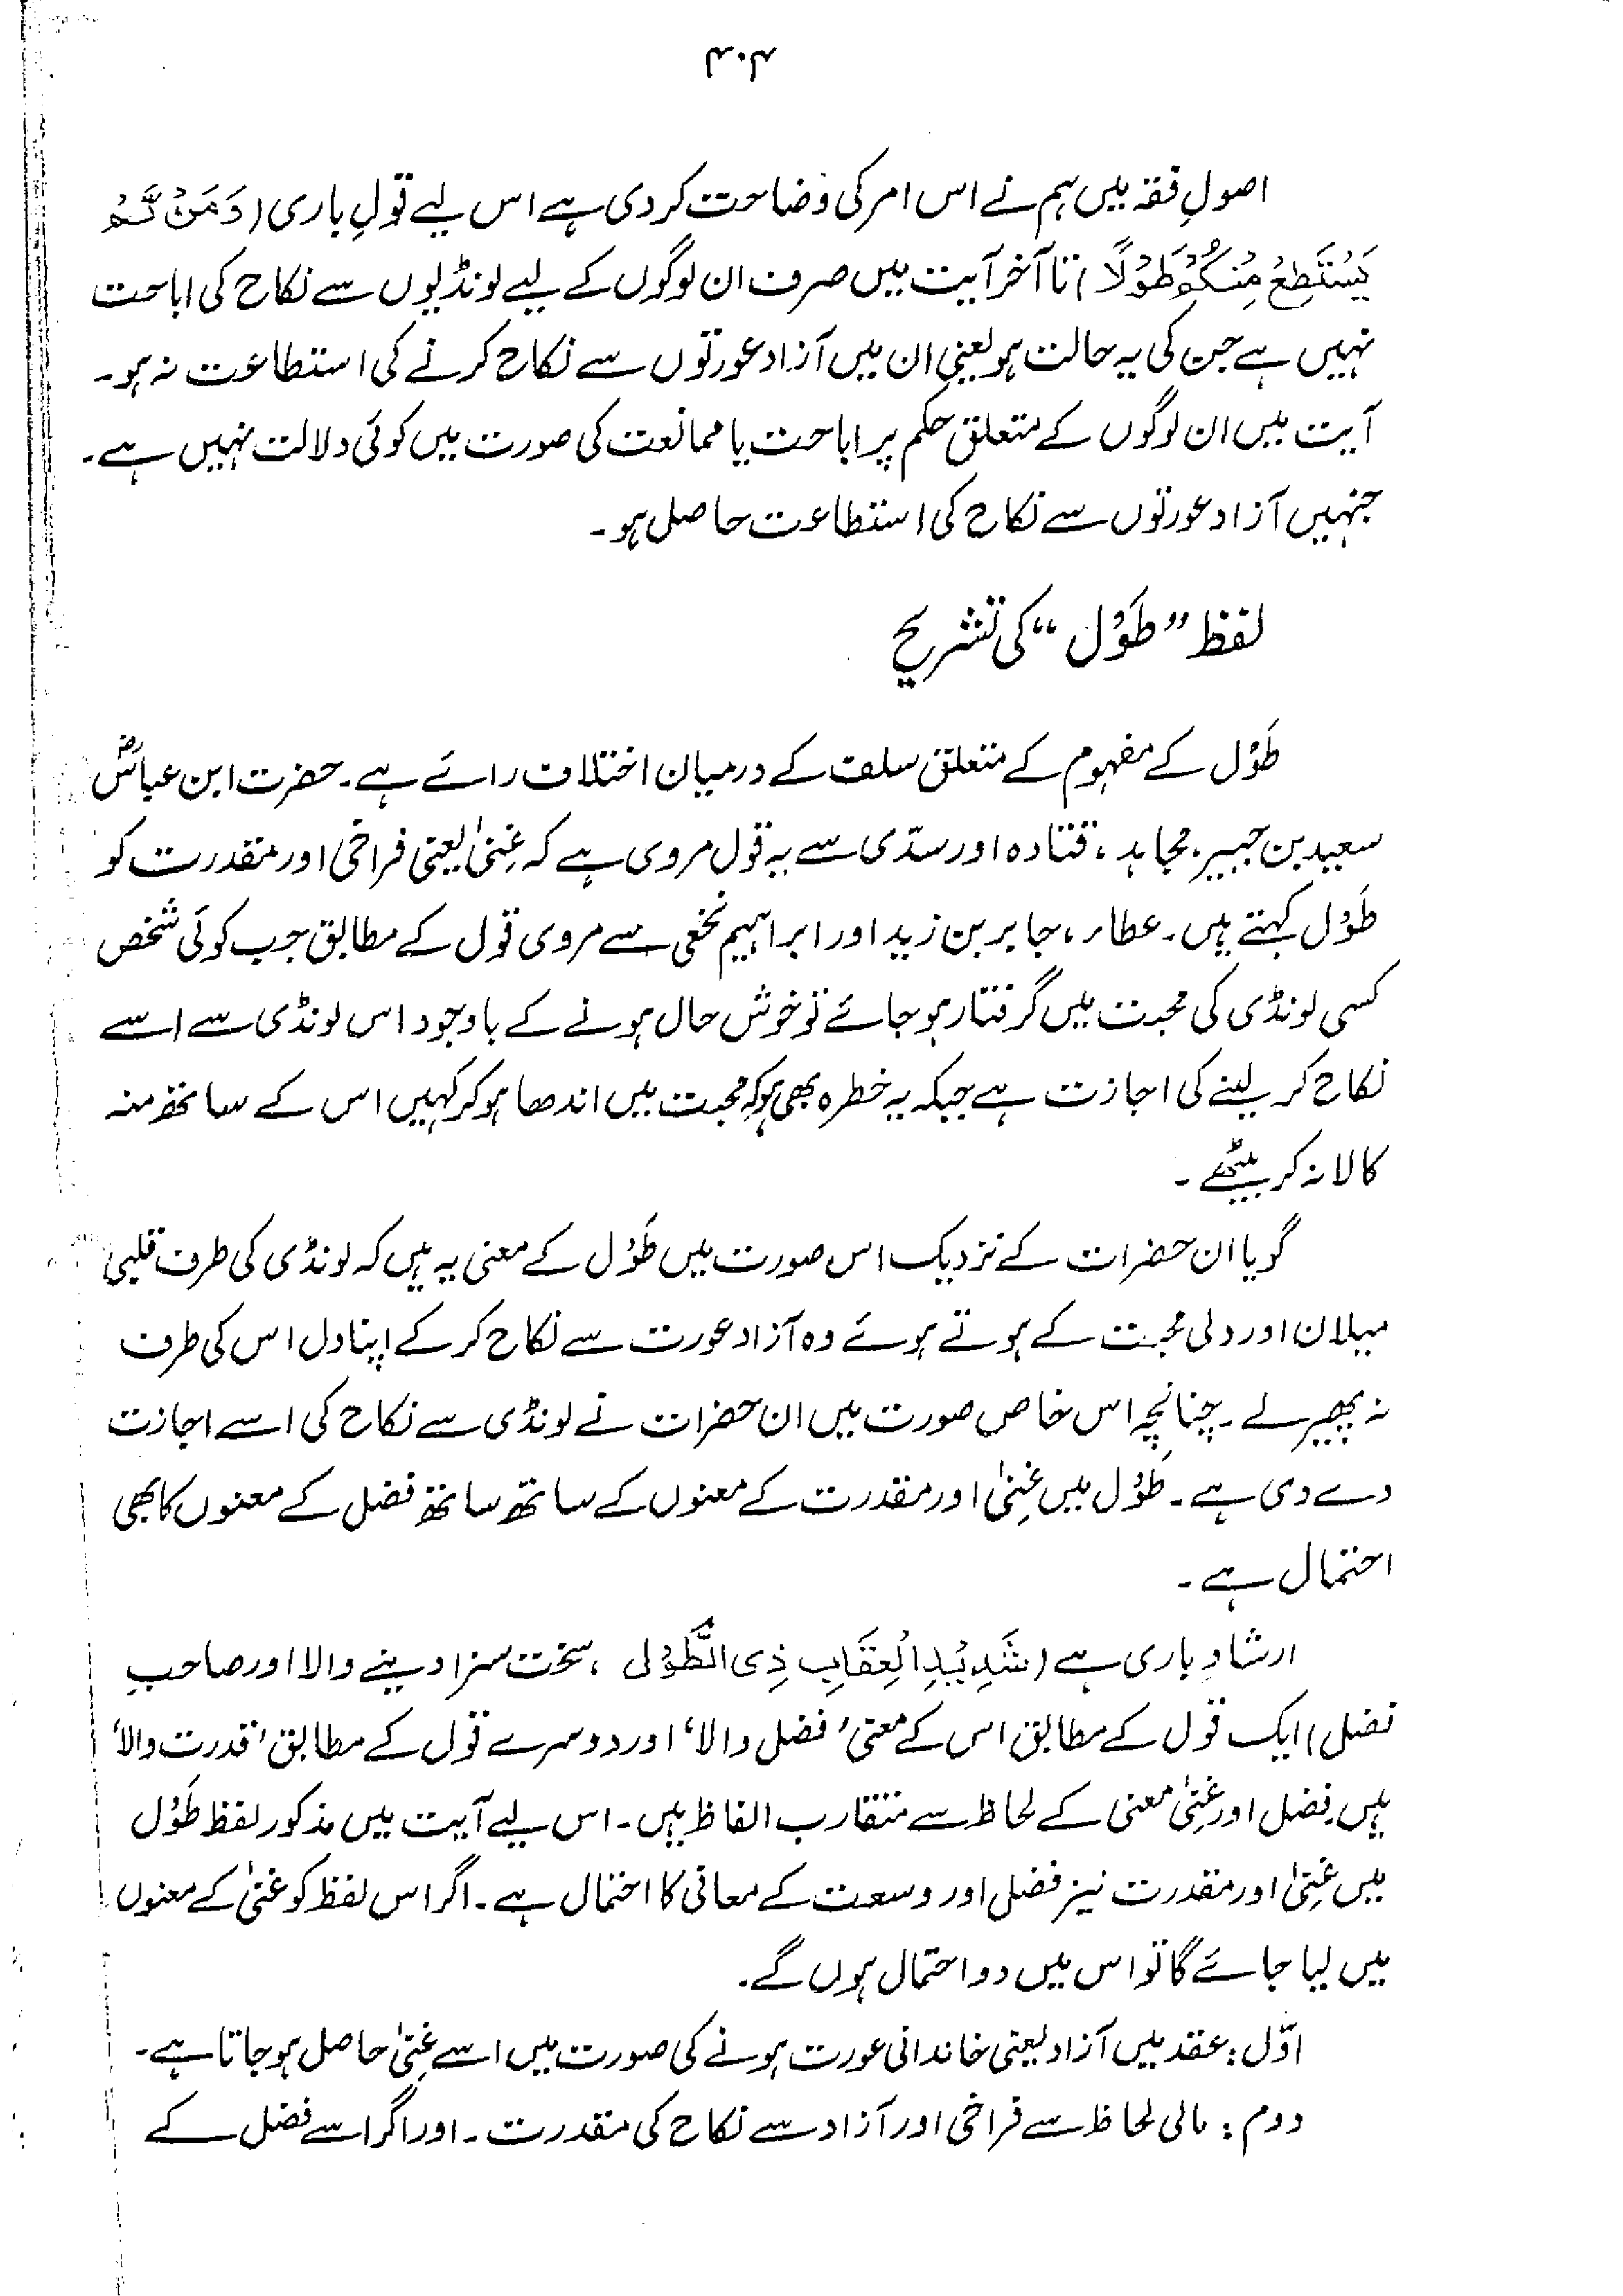 ۳۰۴
اصولِ فقہ میں ہم نے اس امر کی وضاحت کر دی ہے اس لیے قولِ باری (وَمَنْ لَّمْ
یَسْتَطِعْ مِنْکُمْ طَوْلًا) تا آخر آیت میں صرف ان لوگوں کے لیے لونڈیوں سے نکاح کی اباحت
نہیں ہے جن کی یہ حالت ہو یعنی ان میں آزاد عورتوں سے نکاح کرنے کی استطاعت نہ ہو۔
آیت میں ان لوگوں کے متعلق حکم پر اباحت یا ممانعت کی صورت میں کوئی دلالت نہیں ہے۔
جنہیں آزاد عورتوں سے نکاح کی استطاعت حاصل ہو۔
لفظ "طَوْل" کی تشریح
طَوْل کے مفہوم کے متعلق سلف کے درمیان اختلاف رائے ہے۔ حضرت ابن عباسؓ
سعید بن جبیر، مجاہد، قتادہ اور سدّی سے یہ قول مروی ہے کہ غِنیٰ یعنی فراخی اور مقدرت کو
طَوْل کہتے ہیں۔ عطاء، جابر بن زید اور ابراہیم نخعی سے مروی قول کے مطابق جب کوئی شخص
کسی لونڈی کی محبت میں گرفتار ہو جائے تو خوش حال ہونے کے باوجود اس لونڈی سے اسے
نکاح کر لینے کی اجازت ہے جبکہ یہ خطرہ بھی ہو کہ محبت میں اندھا ہو کر کہیں اس کے ساتھ منہ
کالا نہ کر بیٹھے۔
گویا ان حضرات کے نزدیک اس صورت میں طَوْل کے معنی یہ ہیں کہ لونڈی کی طرف قلبی
میلان اور دلی محبت کے ہوتے ہوئے وہ آزاد عورت سے نکاح کر کے اپنا دل اس کی طرف
نہ پھیر لے۔ چنانچہ اس خاص صورت میں ان حضرات نے لونڈی سے نکاح کی اسے اجازت
دے دی ہے۔ طَوْل میں غِنیٰ اور مقدرت کے معنوں کے ساتھ ساتھ فضل کے معنوں کا بھی
احتمال ہے۔
ارشادِ باری ہے (شَدِیْدِ الْعِقَابِ ذِی الطَّوْلِ، سخت سزا دینے والا اور صاحبِ
فضل) ایک قول کے مطابق اس کے معنی 'فضل والا' اور دوسرے قول کے مطابق 'قدرت والا'
ہیں۔ فضل اور غِنیٰ معنی کے لحاظ سے متقارب الفاظ ہیں۔ اس لیے آیت میں مذکور لفظ طَوْل
میں غِنیٰ اور مقدرت نیز فضل اور وسعت کے معانی کا احتمال ہے۔ اگر اس لفظ کو غنیٰ کے معنوں
میں لیا جائے گا تو اس میں دو احتمال ہوں گے۔
اوّل: عقد میں آزاد یعنی خاندانی عورت ہونے کی صورت میں اسے غِنیٰ حاصل ہو جاتا ہے۔
دوم: مالی لحاظ سے فراخی اور آزاد سے نکاح کی مقدرت۔ اور اگر اسے فضل کے